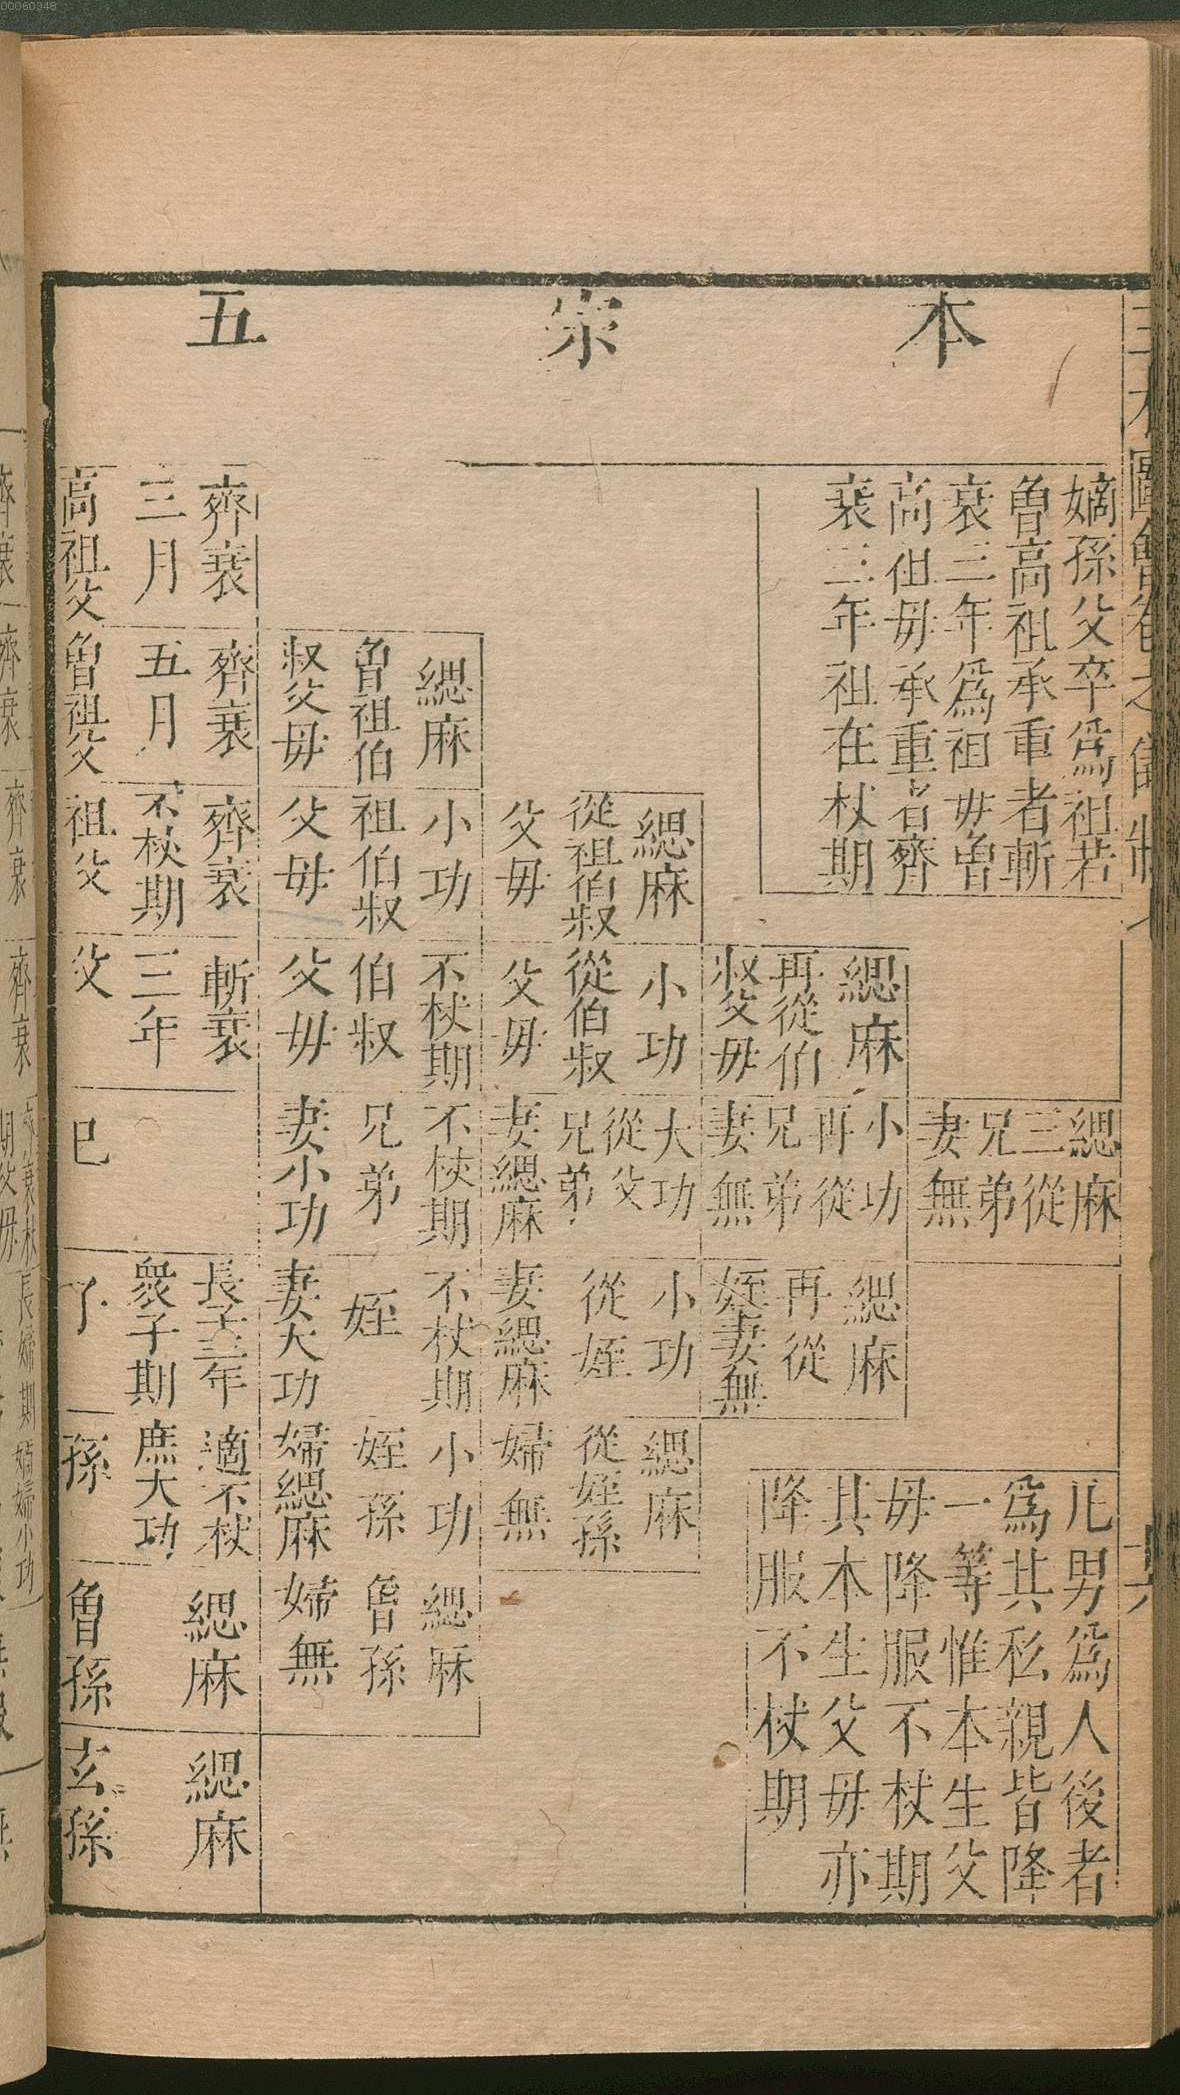 00060348
本宗五
嫡孫父卒爲祖若
曾高祖承重者斬
衰三年爲祖母曾
高祖母承重者齊
衰三年祖在杖期
凡男爲人後者
爲其私親皆降
一等惟本生父
母降服不杖期
其本生父母亦
降服不杖期
緦麻
三從
兄弟
妻無
緦麻
再從伯
叔父母
小功
再從
兄弟
妻無
緦麻
再從
姪妻無
緦麻
從祖伯叔
父母
小功
從伯叔
父母
大功
從父
兄弟
妻緦麻
小功
從姪
妻緦麻
緦麻
從姪孫
婦無
緦麻
曾祖伯
叔父母
小功
祖伯叔
父母
不杖期
伯叔
父母
不杖期
兄弟
妻小功
不杖期
姪
妻大功
小功
姪孫
婦緦麻
緦麻
曾孫
婦無
齊衰
三月
高祖父
齊衰
五月
曾祖父
齊衰
不杖期
祖父
斬衰
三年
父
巳
長子三年
衆子期
子
適不杖
庶大功
孫
緦麻
曾孫
緦麻
玄孫